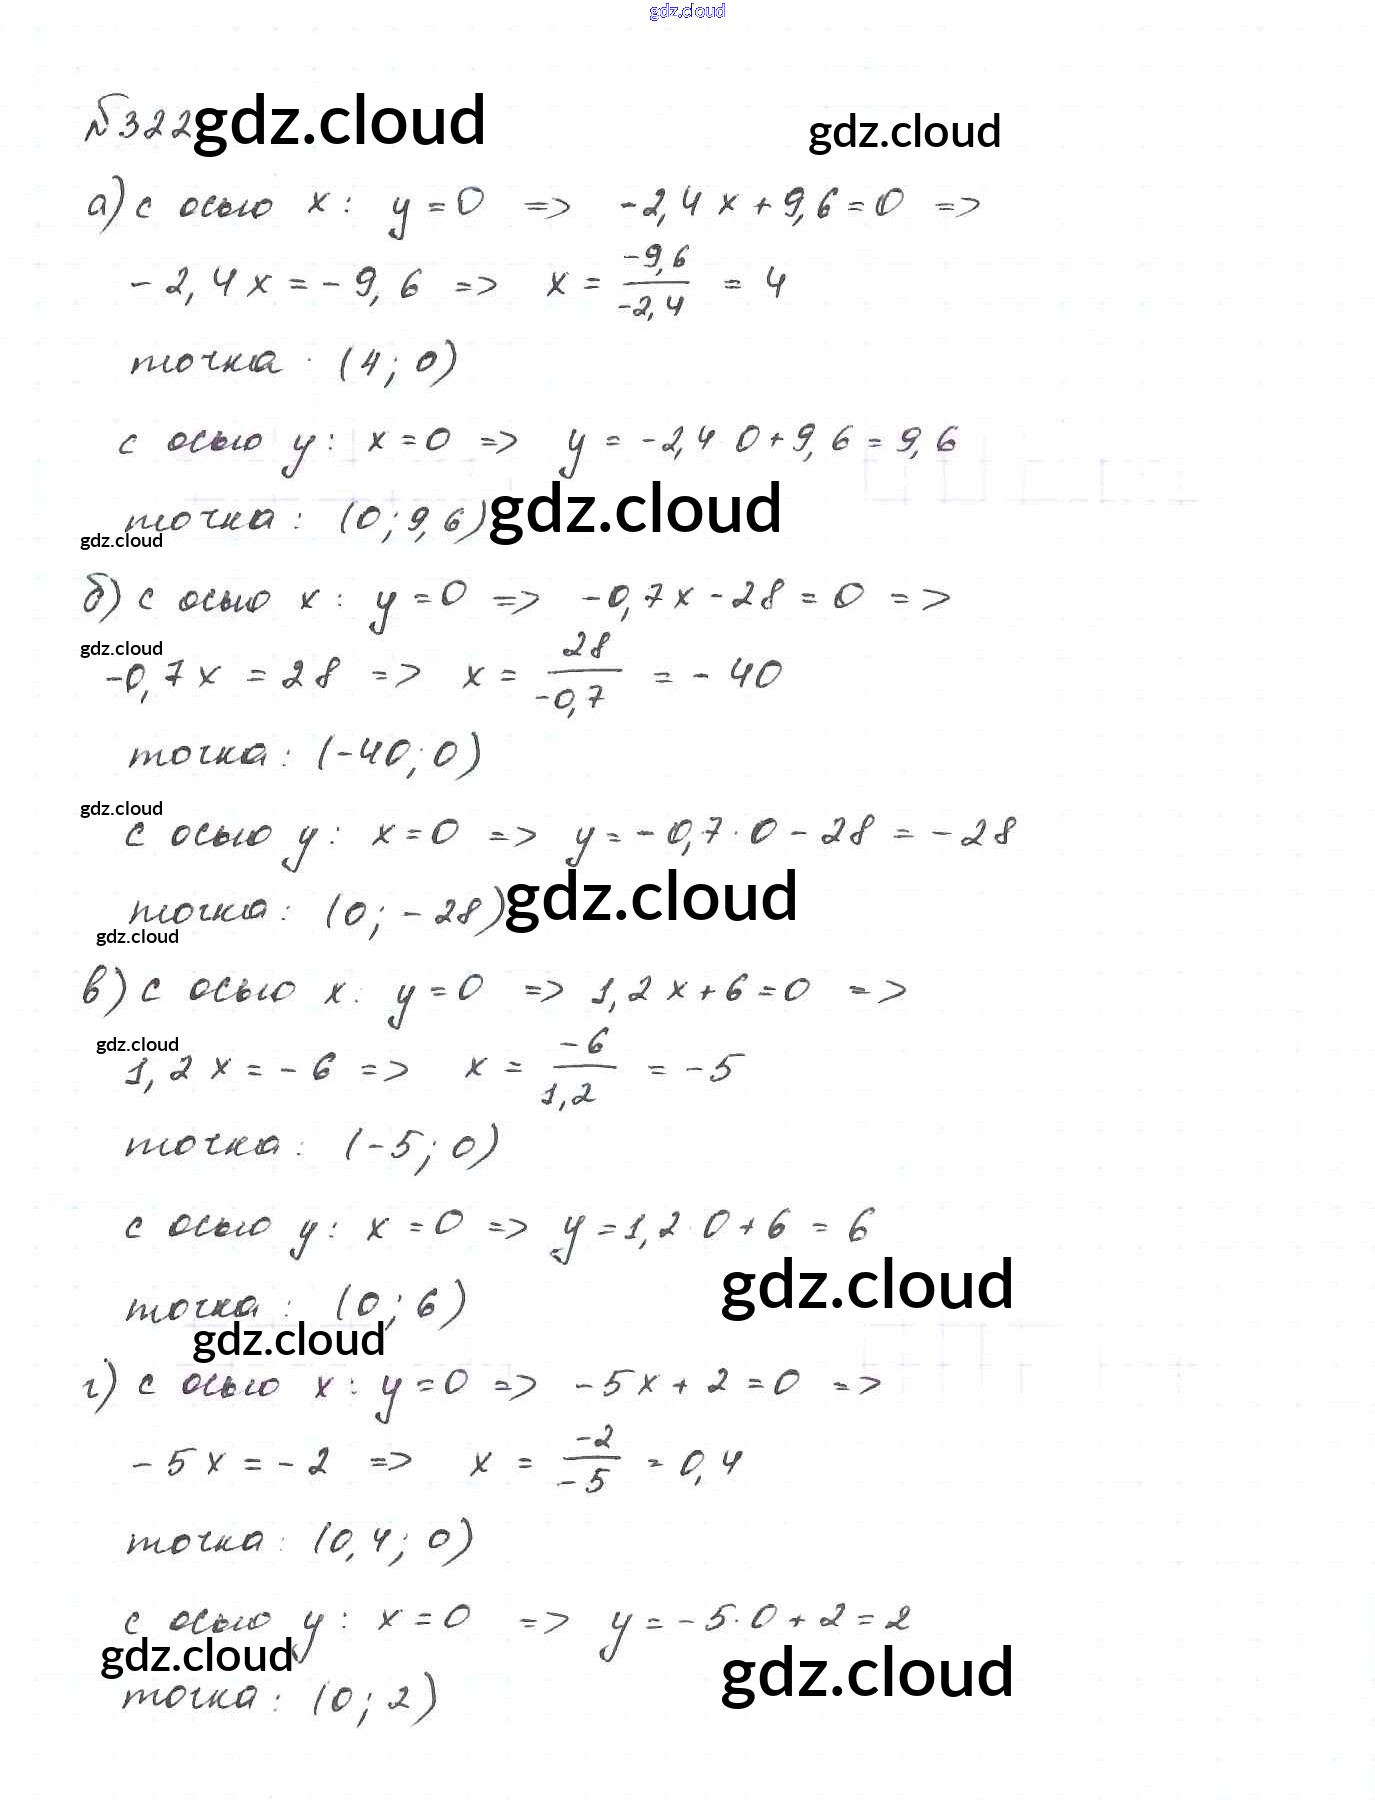 gdz.cloud
№322 gdz.cloud gdz.cloud
а) с осью x: y=0 => -2,4x+9,6=0 =>
-2,4x=-9,6 => x = -9,6/-2,4 = 4
точка (4; 0)
с осью y: x=0 => y = -2,4 0+9,6=9,6
точка: (0; 9,6) gdz.cloud
gdz.cloud
б) с осью x: y=0 => -0,7x-28=0 =>
gdz.cloud
-0,7x = 28 => x = 28/-0,7 = -40
точка: (-40; 0)
gdz.cloud
с осью y: x=0 => y=-0,7·0-28=-28
точка: (0; -28) gdz.cloud
gdz.cloud
в) с осью x: y=0 => 1,2x+6=0 =>
gdz.cloud
1,2x=-6 => x = -6/1,2 = -5
точка: (-5; 0)
с осью y: x=0 => y=1,2 0+6=6
gdz.cloud
точка: (0; 6)
gdz.cloud
г) с осью x: y=0 => -5x+2=0 =>
-5x=-2 => x = -2/-5 = 0,4
точка: (0,4; 0)
с осью y: x=0 => y=-5·0+2=2
gdz.cloud gdz.cloud
точка: (0; 2)